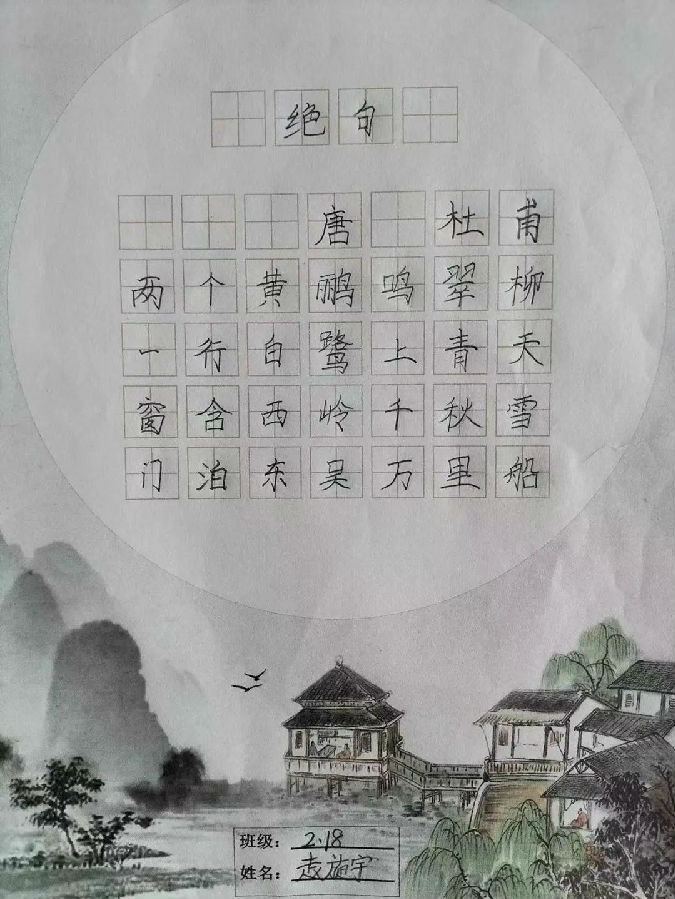 绝句
唐 杜甫
两个黄鹂鸣翠柳
一行白鹭上青天
窗含西岭千秋雪
门泊东吴万里船
班级：2.18
姓名：